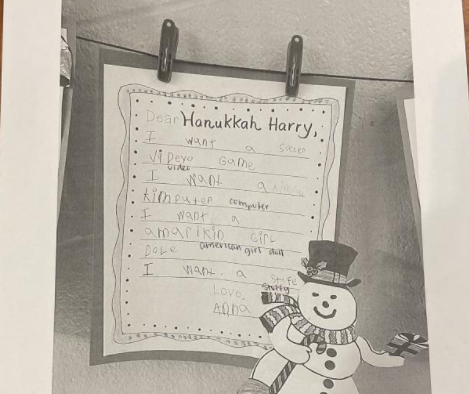 Dear Hanukkah Harry,
I want a
Videyo Game
video
I want a
kimputer computer
I want a
amarikin Girl
Dole american girl doll
I want a Stufe
stuffy
Love,
ADNA